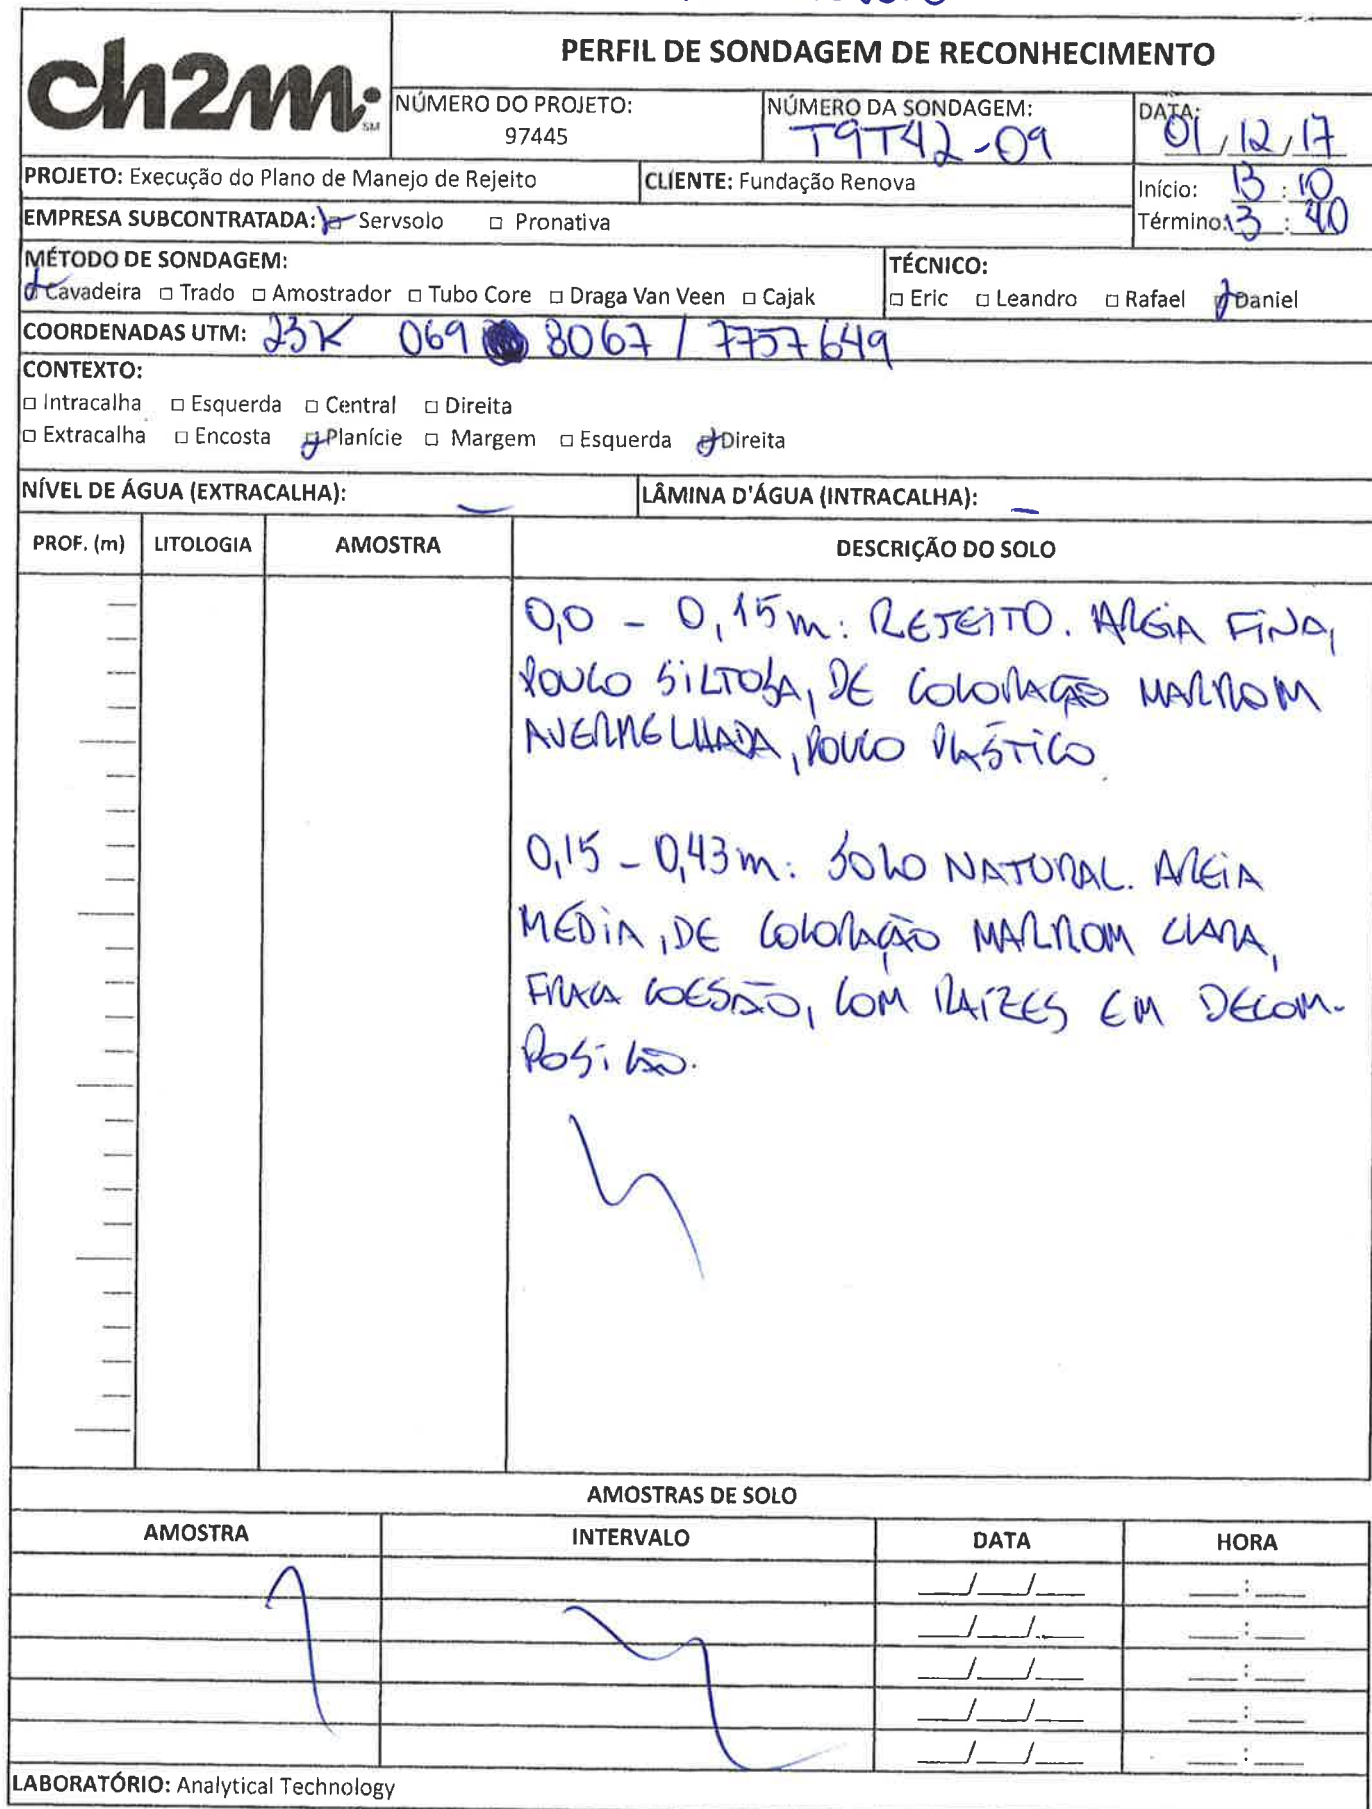 ch2m: SM
PERFIL DE SONDAGEM DE RECONHECIMENTO
NÚMERO DO PROJETO:
97445
NÚMERO DA SONDAGEM:
T9T42-09
DATA:
01/12/17
PROJETO: Execução do Plano de Manejo de Rejeito
CLIENTE: Fundação Renova
Início: 13:10
EMPRESA SUBCONTRATADA: Servsolo □ Pronativa
Término: 13:40
MÉTODO DE SONDAGEM:
Cavadeira □ Trado □ Amostrador □ Tubo Core □ Draga Van Veen □ Cajak
TÉCNICO:
□ Eric □ Leandro □ Rafael Daniel
COORDENADAS UTM: 23K 069 8067 / 7757649
CONTEXTO:
□ Intracalha □ Esquerda □ Central □ Direita
□ Extracalha □ Encosta Planície □ Margem □ Esquerda Direita
NÍVEL DE ÁGUA (EXTRACALHA): –
LÂMINA D'ÁGUA (INTRACALHA): –
PROF. (m) LITOLOGIA AMOSTRA DESCRIÇÃO DO SOLO
0,0 - 0,15m: REJEITO. AREIA FINA,
POUCO SILTOSA, DE COLORAÇÃO MARROM
AVERMELHADA, POUCO PLÁSTICO.
0,15 - 0,43m: SOLO NATURAL. AREIA
MÉDIA, DE COLORAÇÃO MARROM CLARA,
FRACA COESÃO, COM RAÍZES EM DECOM-
POSIÇÃO.
AMOSTRAS DE SOLO
AMOSTRA INTERVALO DATA HORA
___/___/___ ___:___
___/___/___ ___:___
___/___/___ ___:___
___/___/___ ___:___
___/___/___ ___:___
LABORATÓRIO: Analytical Technology